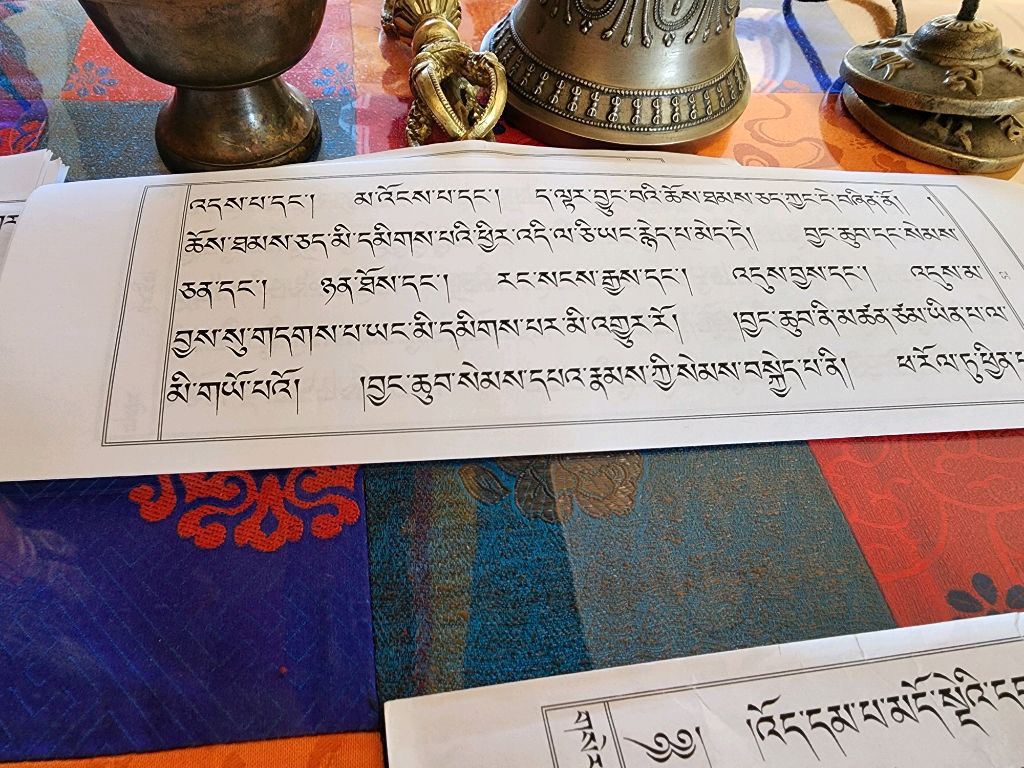 འདས་པ་དང་། མ་འོངས་པ་དང་། ད་ལྟར་བྱུང་བའི་ཆོས་ཐམས་ཅད་ཀྱང་དེ་བཞིན་ནོ། །
ཆོས་ཐམས་ཅད་མི་དམིགས་པའི་ཕྱིར་འདི་ལ་ཅི་ཡང་རྙེད་པ་མེད་དེ། བྱང་ཆུབ་དང་སེམས་
ཅན་དང་། ཉན་ཐོས་དང་། རང་སངས་རྒྱས་དང་། འདུས་བྱས་དང་། འདུས་མ་
བྱས་སུ་གདགས་པ་ཡང་མི་དམིགས་པར་མི་འགྱུར་རོ། །བྱང་ཆུབ་ནི་མཚན་ཙམ་ཡིན་པ་ལ་
མི་གཡོ་བའོ། །བྱང་ཆུབ་སེམས་དཔའ་རྣམས་ཀྱི་སེམས་བསྐྱེད་པ་ནི། ཕ་རོལ་ཏུ་ཕྱིན་
༄༅། །འོད་དམ་པ་མདོ་སྡེའི་